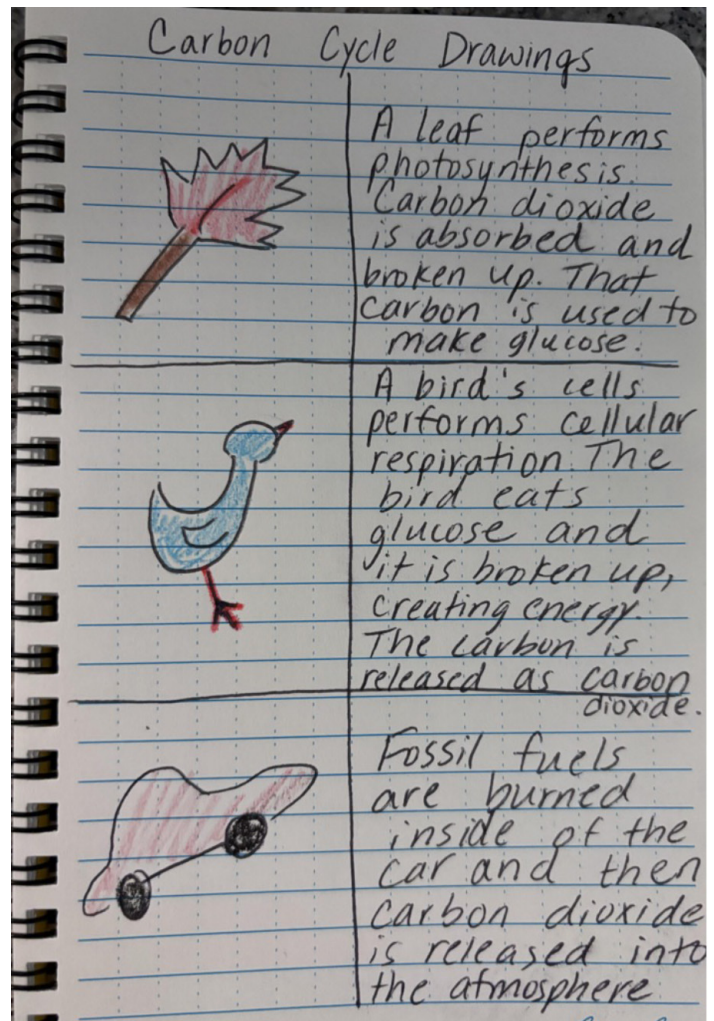 Carbon Cycle Drawings
A leaf performs
photosynthesis.
Carbon dioxide
is absorbed and
broken up. That
carbon is used to
make glucose.
A bird's cells
performs cellular
respiration. The
bird eats
glucose and
it is broken up,
creating energy.
The carbon is
released as carbon
dioxide.
Fossil fuels
are burned
inside of the
car and then
carbon dioxide
is released into
the atmosphere